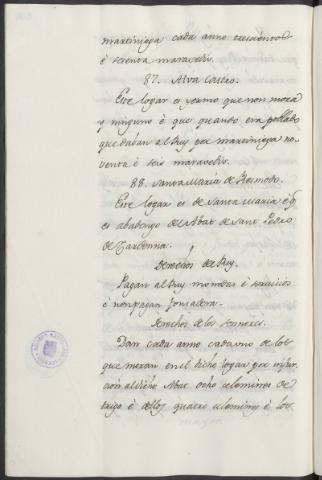 martiniega cada anno trescientos
é setenta maravedis.
87. Alva Castro.
Este logar es yermo que non mora
y ninguno é que quando era poblado
que daban al Rey por martiniega no-
venta é seis maravedis.
88. Santa Maria de Hormodo.
Este logar es de Santa Maria é
es abadengo del Abat de Sant Pedro
de Cardenna.
Derechos del Rey.
Pagan al Rey monedas é servicios
é non pagan fonsadera.
Derechos de los Sennores.
Dan cada anno cada uno de los
que moran en el dicho logar por infur-
cion al dicho Abat ocho celemines de
trigo é dellos quatro celemines é los